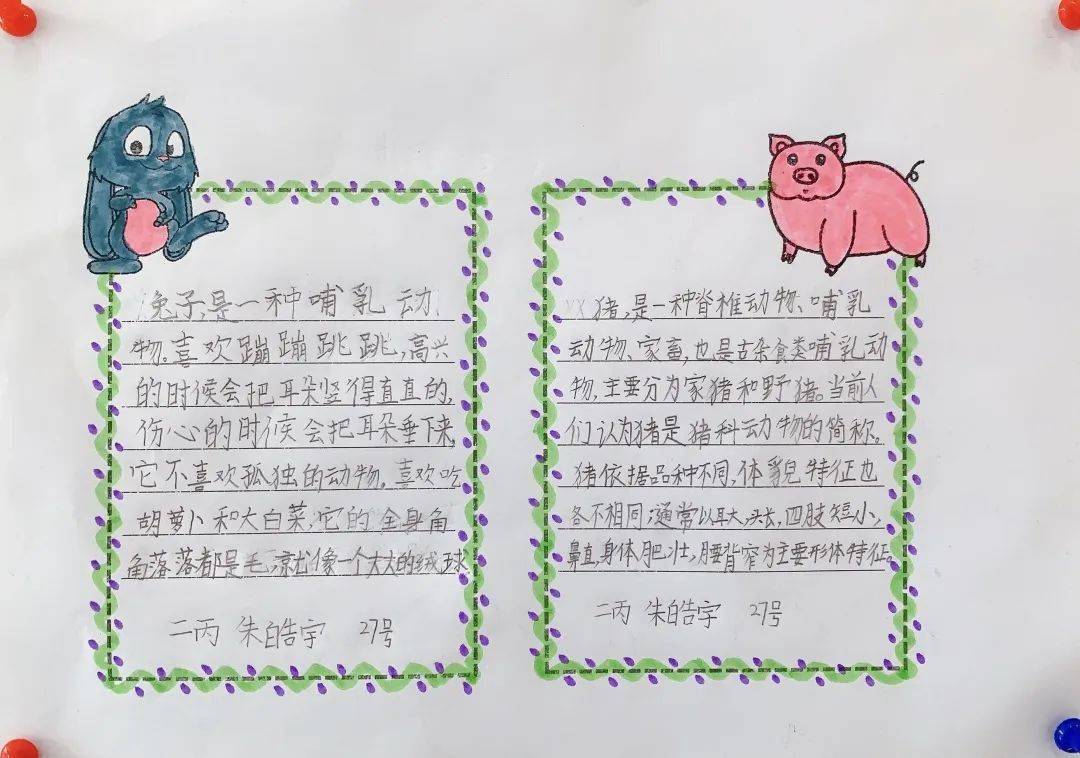 兔子,是一种哺乳动
物。喜欢蹦蹦跳跳,高兴
的时候会把耳朵竖得直直的,
伤心的时候会把耳朵垂下来,
它不喜欢孤独的动物。喜欢吃
胡萝卜和大白菜,它的全身角
角落落都是毛,就像一个大大的绒球
二丙 朱皓宇 27号
猪,是一种脊椎动物、哺乳
动物、家畜,也是古杂食类哺乳动
物,主要分为家猪和野猪。当前人
们认为猪是猪科动物的简称。
猪依据品种不同,体貌特征也
各不相同;通常以耳大,头长,四肢短小,
鼻直,身体肥壮,腰背窄为主要形体特征。
二丙 朱皓宇 27号